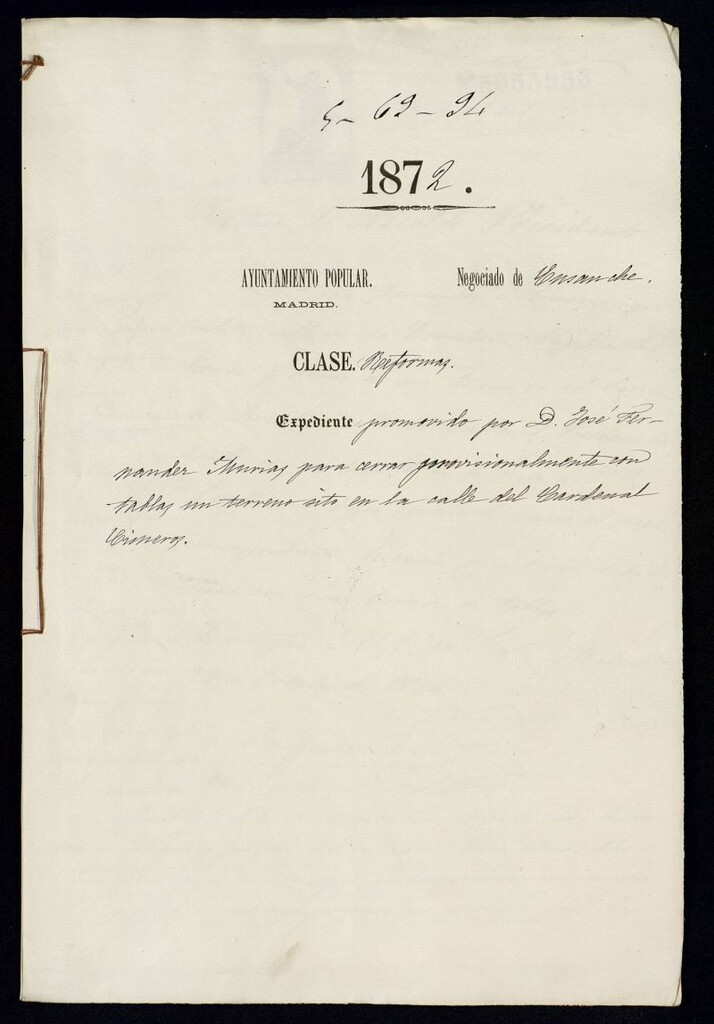 5 - 69 - 94
1872.
AYUNTAMIENTO POPULAR. Negociado de Ensanche.
MADRID.
CLASE. Reformas.
Expediente promovido por D. José Fer-
nandez Murias para cerrar provisionalmente con
tablas un terreno sito en la calle del Cardenal
Cisneros.